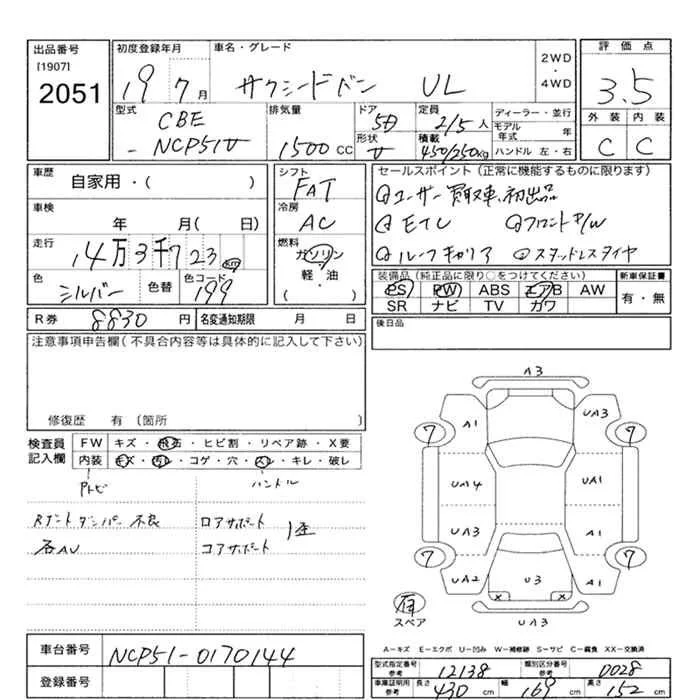 出品番号 初度登録年月 車名・グレード 2WD・4WD 評価点
[1907]
2051 19 7月 サクシードバン UL 3.5
型式 排気量 ドア 定員 ディーラー・並行 外装 内装
CBE 5D 2/5人 モデル年式 年
-NCP51V 1500CC 形状 V 積載 450/250kg ハンドル 左・右 C C
車歴 シフト セールスポイント(正常に機能するものに限ります)
自家用・( ) FAT ユーザー買取車、初出品
車検 冷房 ETC フロントP/W
年 月( 日) AC ルーフキャリア スタッドレスタイヤ
走行 燃料
14万3千723km ガソリン・軽・油 ( )
装備品(純正品に限り○をつけてください) 新車保証書
色 色替 色コード PS PW ABS エアB AW 有・無
シルバー 199 SR ナビ TV カワ
R券 8830円 名変通知期限 月 日 後日品
注意事項申告欄(不具合内容等は具体的に記入して下さい)
修復歴 有 [箇所 )
検査員記入欄 FW キズ・飛石・ヒビ割・リペア跡・X要
内装 キズ・汚レ・コゲ・穴・スレ・キレ・破レ
ハンドル
不良 ロアサポート
各AU コアサポート
A3
A1 UA3
7 7
UA4 UA1
UA3 A1
7 7
UA2 U3 A1
X X
UA3
有
スペア
A-キズ E-エクボ U-凹み W-補修跡 S-サビ C-腐食 XX-交換済
車台番号 NCP51-0170144
登録番号
型式指定番号 参考 12138 類別区分番号 参考 0028
車庫証明用 参考 長さ 430cm 幅 169cm 高さ 152cm